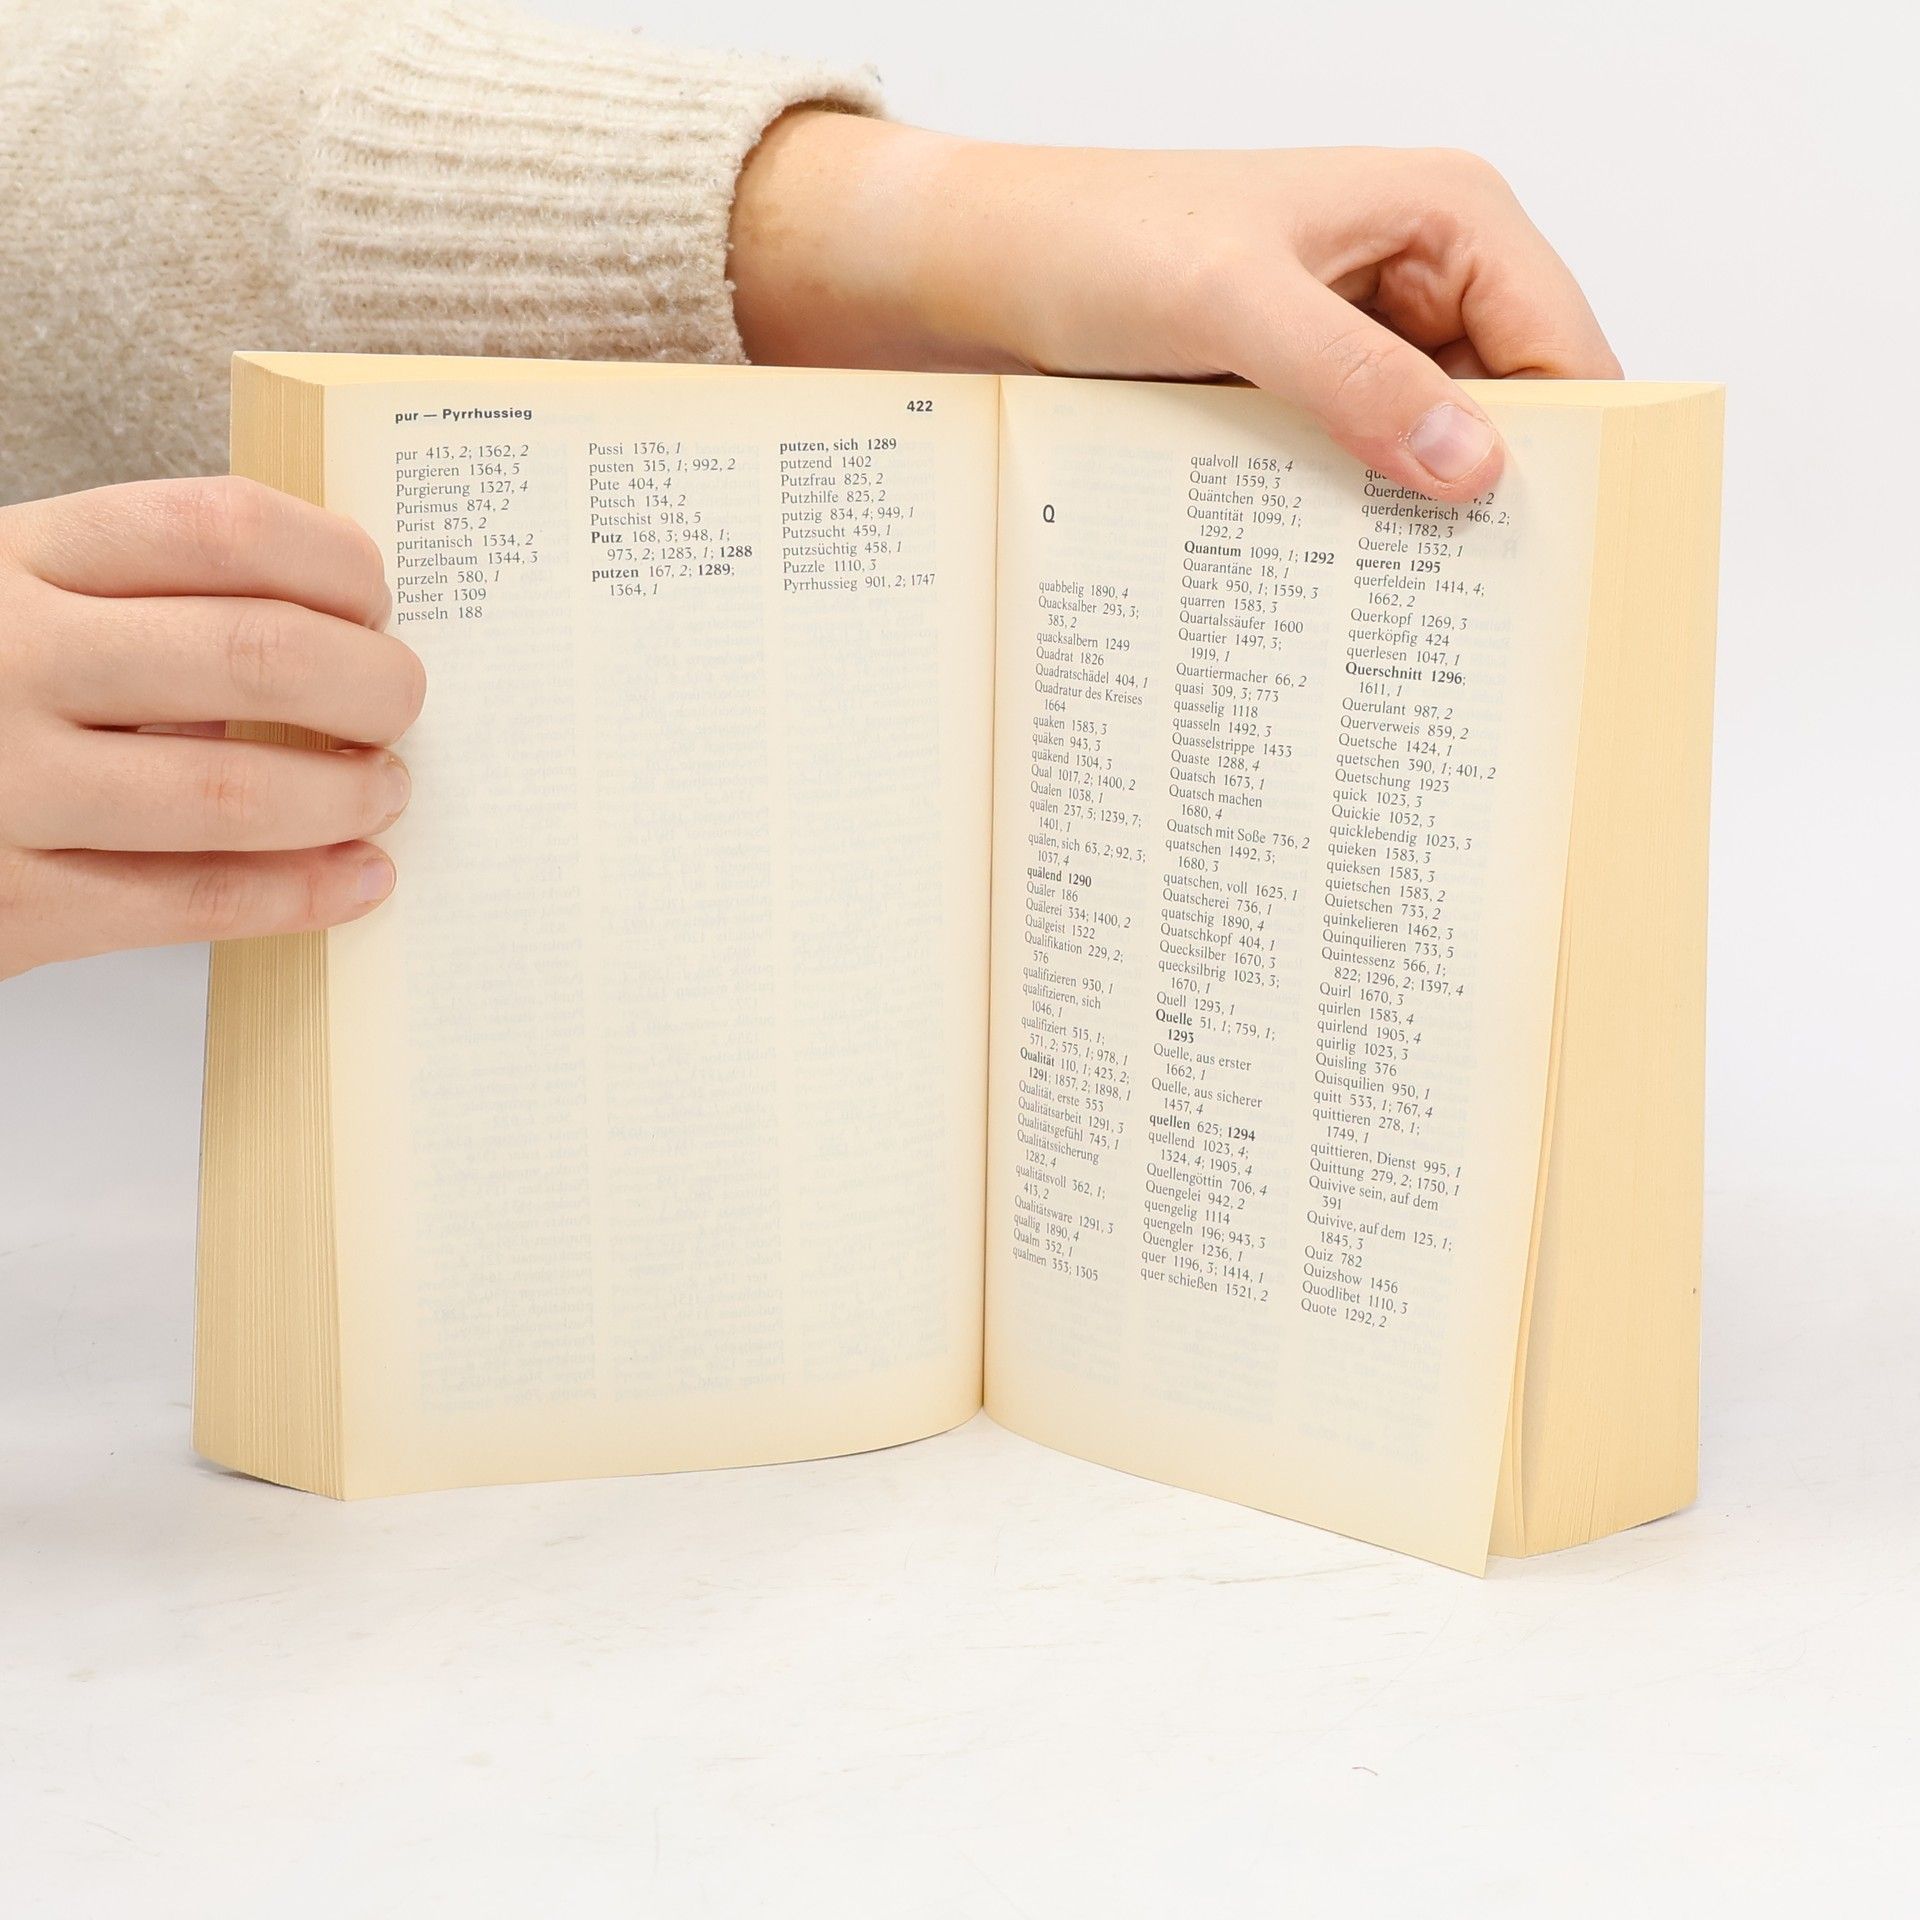 pur — Pyrrhussieg
422
pur 413, 2; 1362, 2
purgieren 1364, 5
Purgierung 1327, 4
Purismus 874, 2
Purist 875, 2
puritanisch 1534, 2
Purzelbaum 1344, 3
purzeln 580, 1
Pusher 1309
pusseln 188
Pussi 1376, 1
pusten 315, 1; 992, 2
Pute 404, 4
Putsch 134, 2
Putschist 918, 5
Putz 168, 3; 948, 1;
973, 2; 1283, 1; 1288
putzen 167, 2; 1289;
1364, 1
putzen, sich 1289
putzend 1402
Putzfrau 825, 2
Putzhilfe 825, 2
putzig 834, 4; 949, 1
Putzsucht 459, 1
putzsüchtig 458, 1
Puzzle 1110, 3
Pyrrhussieg 901, 2; 1747
Q
quabbelig 1890, 4
Quacksalber 293, 3;
383, 2
quacksalbern 1249
Quadrat 1826
Quadratschädel 404, 1
Quadratur des Kreises
1664
quaken 1583, 3
quäken 943, 3
quäkend 1304, 3
Qual 1017, 2; 1400, 2
Qualen 1038, 1
quälen 237, 5; 1239, 7;
1401, 1
quälen, sich 63, 2; 92, 3;
1037, 4
quälend 1290
Quäler 186
Quälerei 334; 1400, 2
Quälgeist 1522
Qualifikation 229, 2;
576
qualifizieren 930, 1
qualifizieren, sich
1046, 1
qualifiziert 515, 1;
571, 2; 575, 1; 978, 1
Qualität 110, 1; 423, 2;
1291; 1857, 2; 1898, 1
Qualität, erste 553
Qualitätsarbeit 1291, 3
Qualitätsgefühl 745, 1
Qualitätssicherung
1282, 4
qualitätsvoll 362, 1;
413, 2
Qualitätsware 1291, 3
quallig 1890, 4
Qualm 352, 1
qualmen 353; 1305
qualvoll 1658, 4
Quant 1559, 3
Quäntchen 950, 2
Quantität 1099, 1;
1292, 2
Quantum 1099, 1; 1292
Quarantäne 18, 1
Quark 950, 1; 1559, 3
quarren 1583, 3
Quartalssäufer 1600
Quartier 1497, 3;
1919, 1
Quartiermacher 66, 2
quasi 309, 3; 773
quasselig 1118
quasseln 1492, 3
Quasselstrippe 1433
Quaste 1288, 4
Quatsch 1673, 1
Quatsch machen
1680, 4
Quatsch mit Soße 736, 2
quatschen 1492, 3;
1680, 3
quatschen, voll 1625, 1
Quatscherei 736, 1
quatschig 1890, 4
Quatschkopf 404, 1
Quecksilber 1670, 3
quecksilbrig 1023, 3;
1670, 1
Quell 1293, 1
Quelle 51, 1; 759, 1;
1293
Quelle, aus erster
1662, 1
Quelle, aus sicherer
1457, 4
quellen 625; 1294
quellend 1023, 4;
1324, 4; 1905, 4
Quellengöttin 706, 4
Quengelei 942, 2
quengelig 1114
quengeln 196; 943, 3
Quengler 1236, 1
quer 1196, 3; 1414, 1
quer schießen 1521, 2
2
querdenkerisch 466, 2;
841; 1782, 3
Querele 1532, 1
queren 1295
querfeldein 1414, 4;
1662, 2
Querkopf 1269, 3
querköpfig 424
querlesen 1047, 1
Querschnitt 1296;
1611, 1
Querulant 987, 2
Querverweis 859, 2
Quetsche 1424, 1
quetschen 390, 1; 401, 2
Quetschung 1923
quick 1023, 3
Quickie 1052, 3
quicklebendig 1023, 3
quieken 1583, 3
quieksen 1583, 3
quietschen 1583, 2
Quietschen 733, 2
quinkelieren 1462, 3
Quinquilieren 733, 5
Quintessenz 566, 1;
822; 1296, 2; 1397, 4
Quirl 1670, 3
quirlen 1583, 4
quirlend 1905, 4
quirlig 1023, 3
Quisling 376
Quisquilien 950, 1
quitt 533, 1; 767, 4
quittieren 278, 1;
1749, 1
quittieren, Dienst 995, 1
Quittung 279, 2; 1750, 1
Quivive sein, auf dem
391
Quivive, auf dem 125, 1;
1845, 3
Quiz 782
Quizshow 1456
Quodlibet 1110, 3
Quote 1292, 2